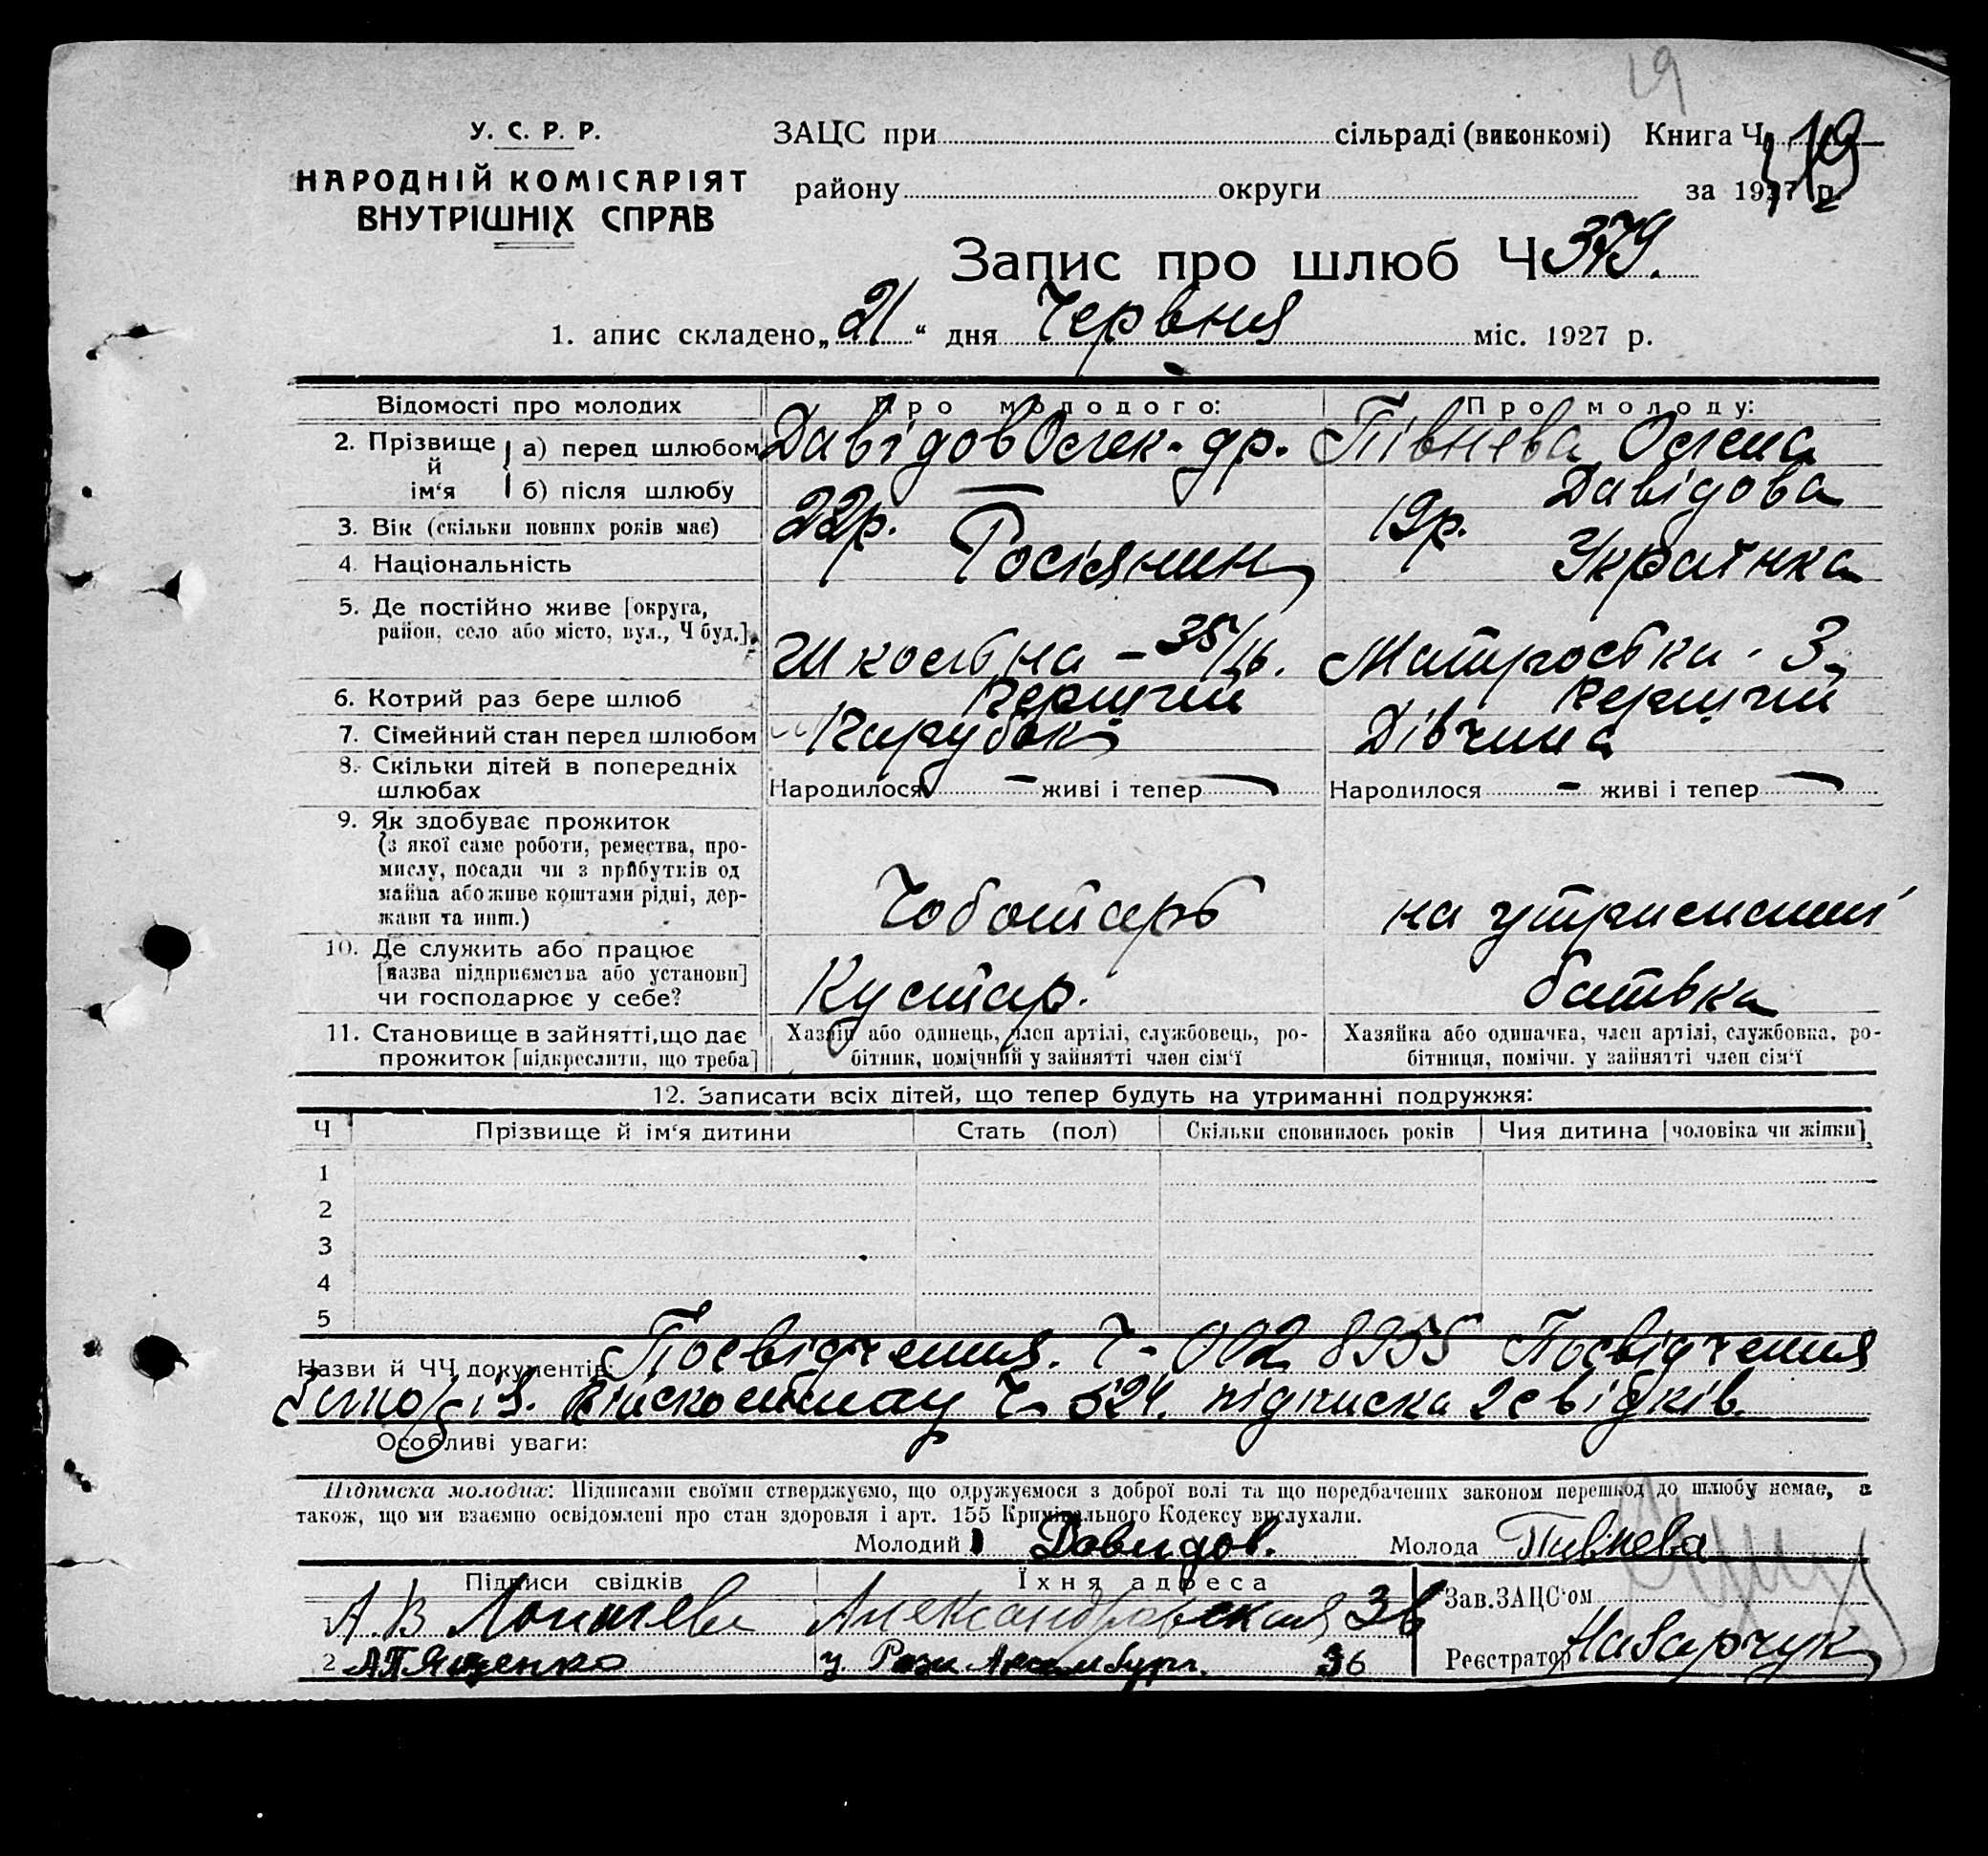 19
У. С. Р. Р.
НАРОДНІЙ КОМІСАРІЯТ
ВНУТРІШНІХ СПРАВ
ЗАЦС при сільраді (виконкомі) Книга Ч
району округи за 1927 р.
Запис про шлюб Ч 379.
1. апис складено „21“ дня Червня міс. 1927 р.
Відомості про молодих
Про молодого:
Про молоду:
2. Прізвище й ім‘я
а) перед шлюбом
Давідов Олек-др.
Півнева Олена
б) після шлюбу
—
Давідова
3. Вік (скільки повних років має)
22р.
19р.
4. Національність
Росіянин
Українка
5. Де постійно живе [округа,
район, село або місто, вул., Ч буд.]
Шкільна – 35/16.
Матроська. 3
6. Котрий раз бере шлюб
Перший
Перший
7. Сімейний стан перед шлюбом
Парубок
Дівчина
8. Скільки дітей в попередніх
шлюбах
Народилося — живі і тепер —
Народилося — живі і тепер —
9. Як здобуває прожиток
(з якої саме роботи, ремества, про-
мислу, посади чи з прибутків од
майна або живе коштами рідні, дер-
жави та инш.)
Чоботарь
на утриманні
10. Де служить або працює
[назва підприємства або установи]
чи господарює у себе?
Кустар.
батька
11. Становище в зайнятті, що дає
прожиток [підкреслити, що треба]
Хазяїн або одинець, член артілі, службовець, ро-
бітник, помічний у зайнятті член сім‘ї
Хазяйка або одиначка, член артілі, службовка, ро-
бітниця, помічн. у зайнятті член сім‘ї
12. Записати всіх дітей, що тепер будуть на утриманні подружжя:
Ч Прізвище й ім‘я дитини Стать (пол) Скільки сповнилось років Чия дитина [чоловіка чи жінки]
1
2
3
4
5
Назви й ЧЧ документів: Посвідчення. Ч- 002 8955 Посвідчення
Ч 524. підписка 2 свідків.
Особливі уваги:
Підписка молодих: Підписами своїми стверджуємо, що одружуємося з доброї волі та що передбачених законом перешкод до шлюбу немає, а
також, що ми взаємно освідомлені про стан здоровля і арт. 155 Кримінального Кодексу вислухали.
Молодий Давидов. Молода Пивнева
Підписи свідків
Їхня адреса
Зав. ЗАЦС‘ом
1 А. В Александровская 36
2 А П Яценко у. Розы Люксембург. 36
Реєстратор Назарчук